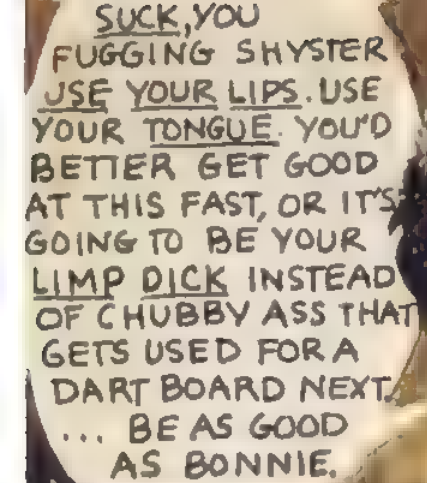 SUCK, YOU
FUGGING SHYSTER
USE YOUR LIPS. USE
YOUR TONGUE. YOU'D
BETTER GET GOOD
AT THIS FAST, OR IT'S
GOING TO BE YOUR
LIMP DICK INSTEAD
OF CHUBBY ASS THAT
GETS USED FOR A
DART BOARD NEXT.
... BE AS GOOD
AS BONNIE.